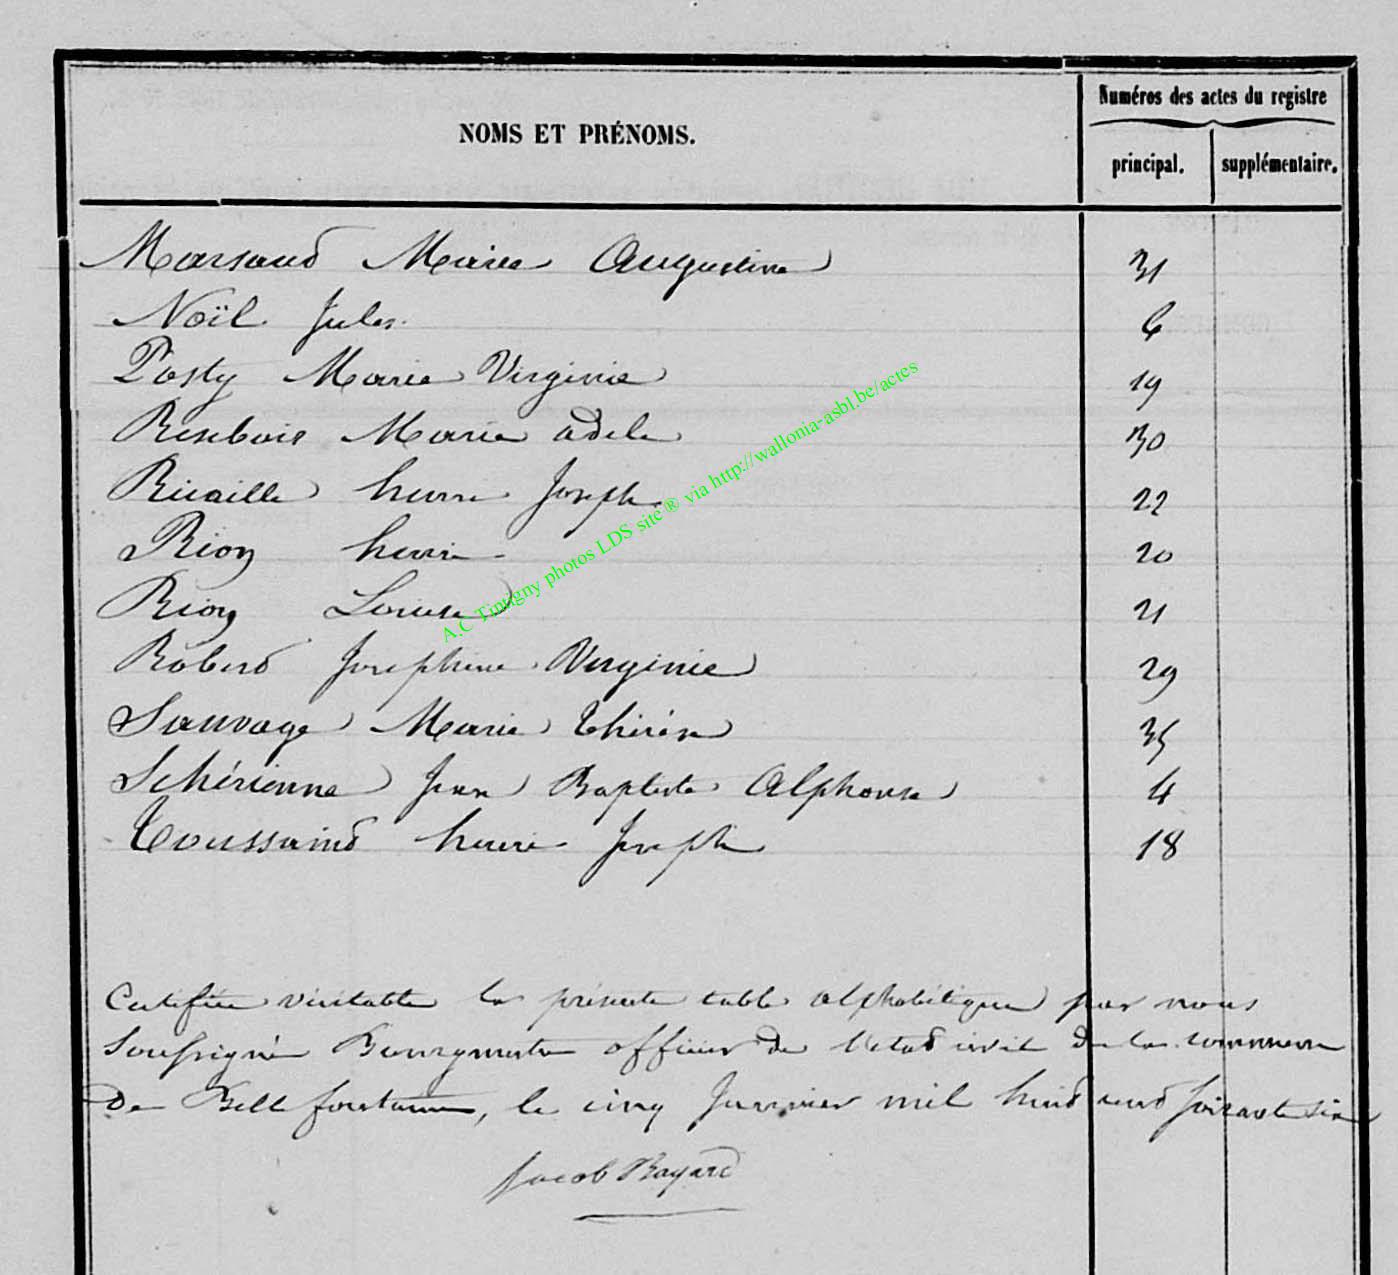 NOMS ET PRÉNOMS.
Numéros des actes du registre
principal. supplémentaire.
Marsaud Marie Augustine 31
Noël Jules 6
Posty Marie Virginie 19
Resibois Marie adele 30
Ricaille henri Joseph 22
Rion henri 20
Rion Louise 21
Robert Josephine Virginie 29
Sauvage Marie Thérèse 35
Schérienne Jean Baptiste Alphonse 4
Toussaint henri Joseph 18
Certifiée véritable la présente table alphabétique par nous
Soussigné Bourgmestre officier de l'etat civil de la commune
De Bellefontaine, le cinq Janvier mil huit cent soixante six
Jacob Bayard
A.C Tintigny photos LDS site ® via http://wallonia-asbl.be/actes